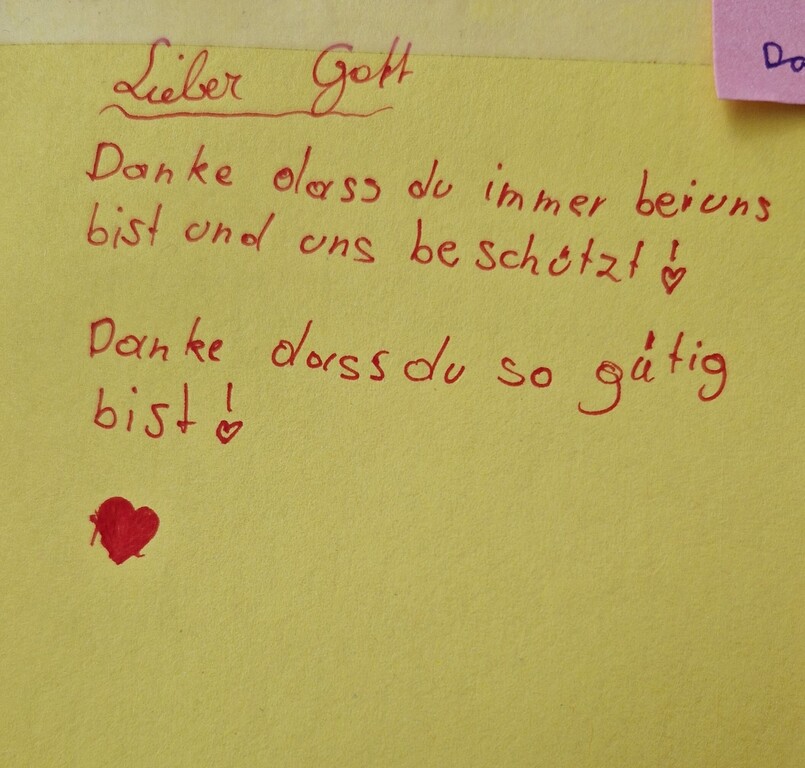 Lieber Gott
Danke dass du immer bei uns
bist und uns beschützt!
Danke dass du so gütig
bist!